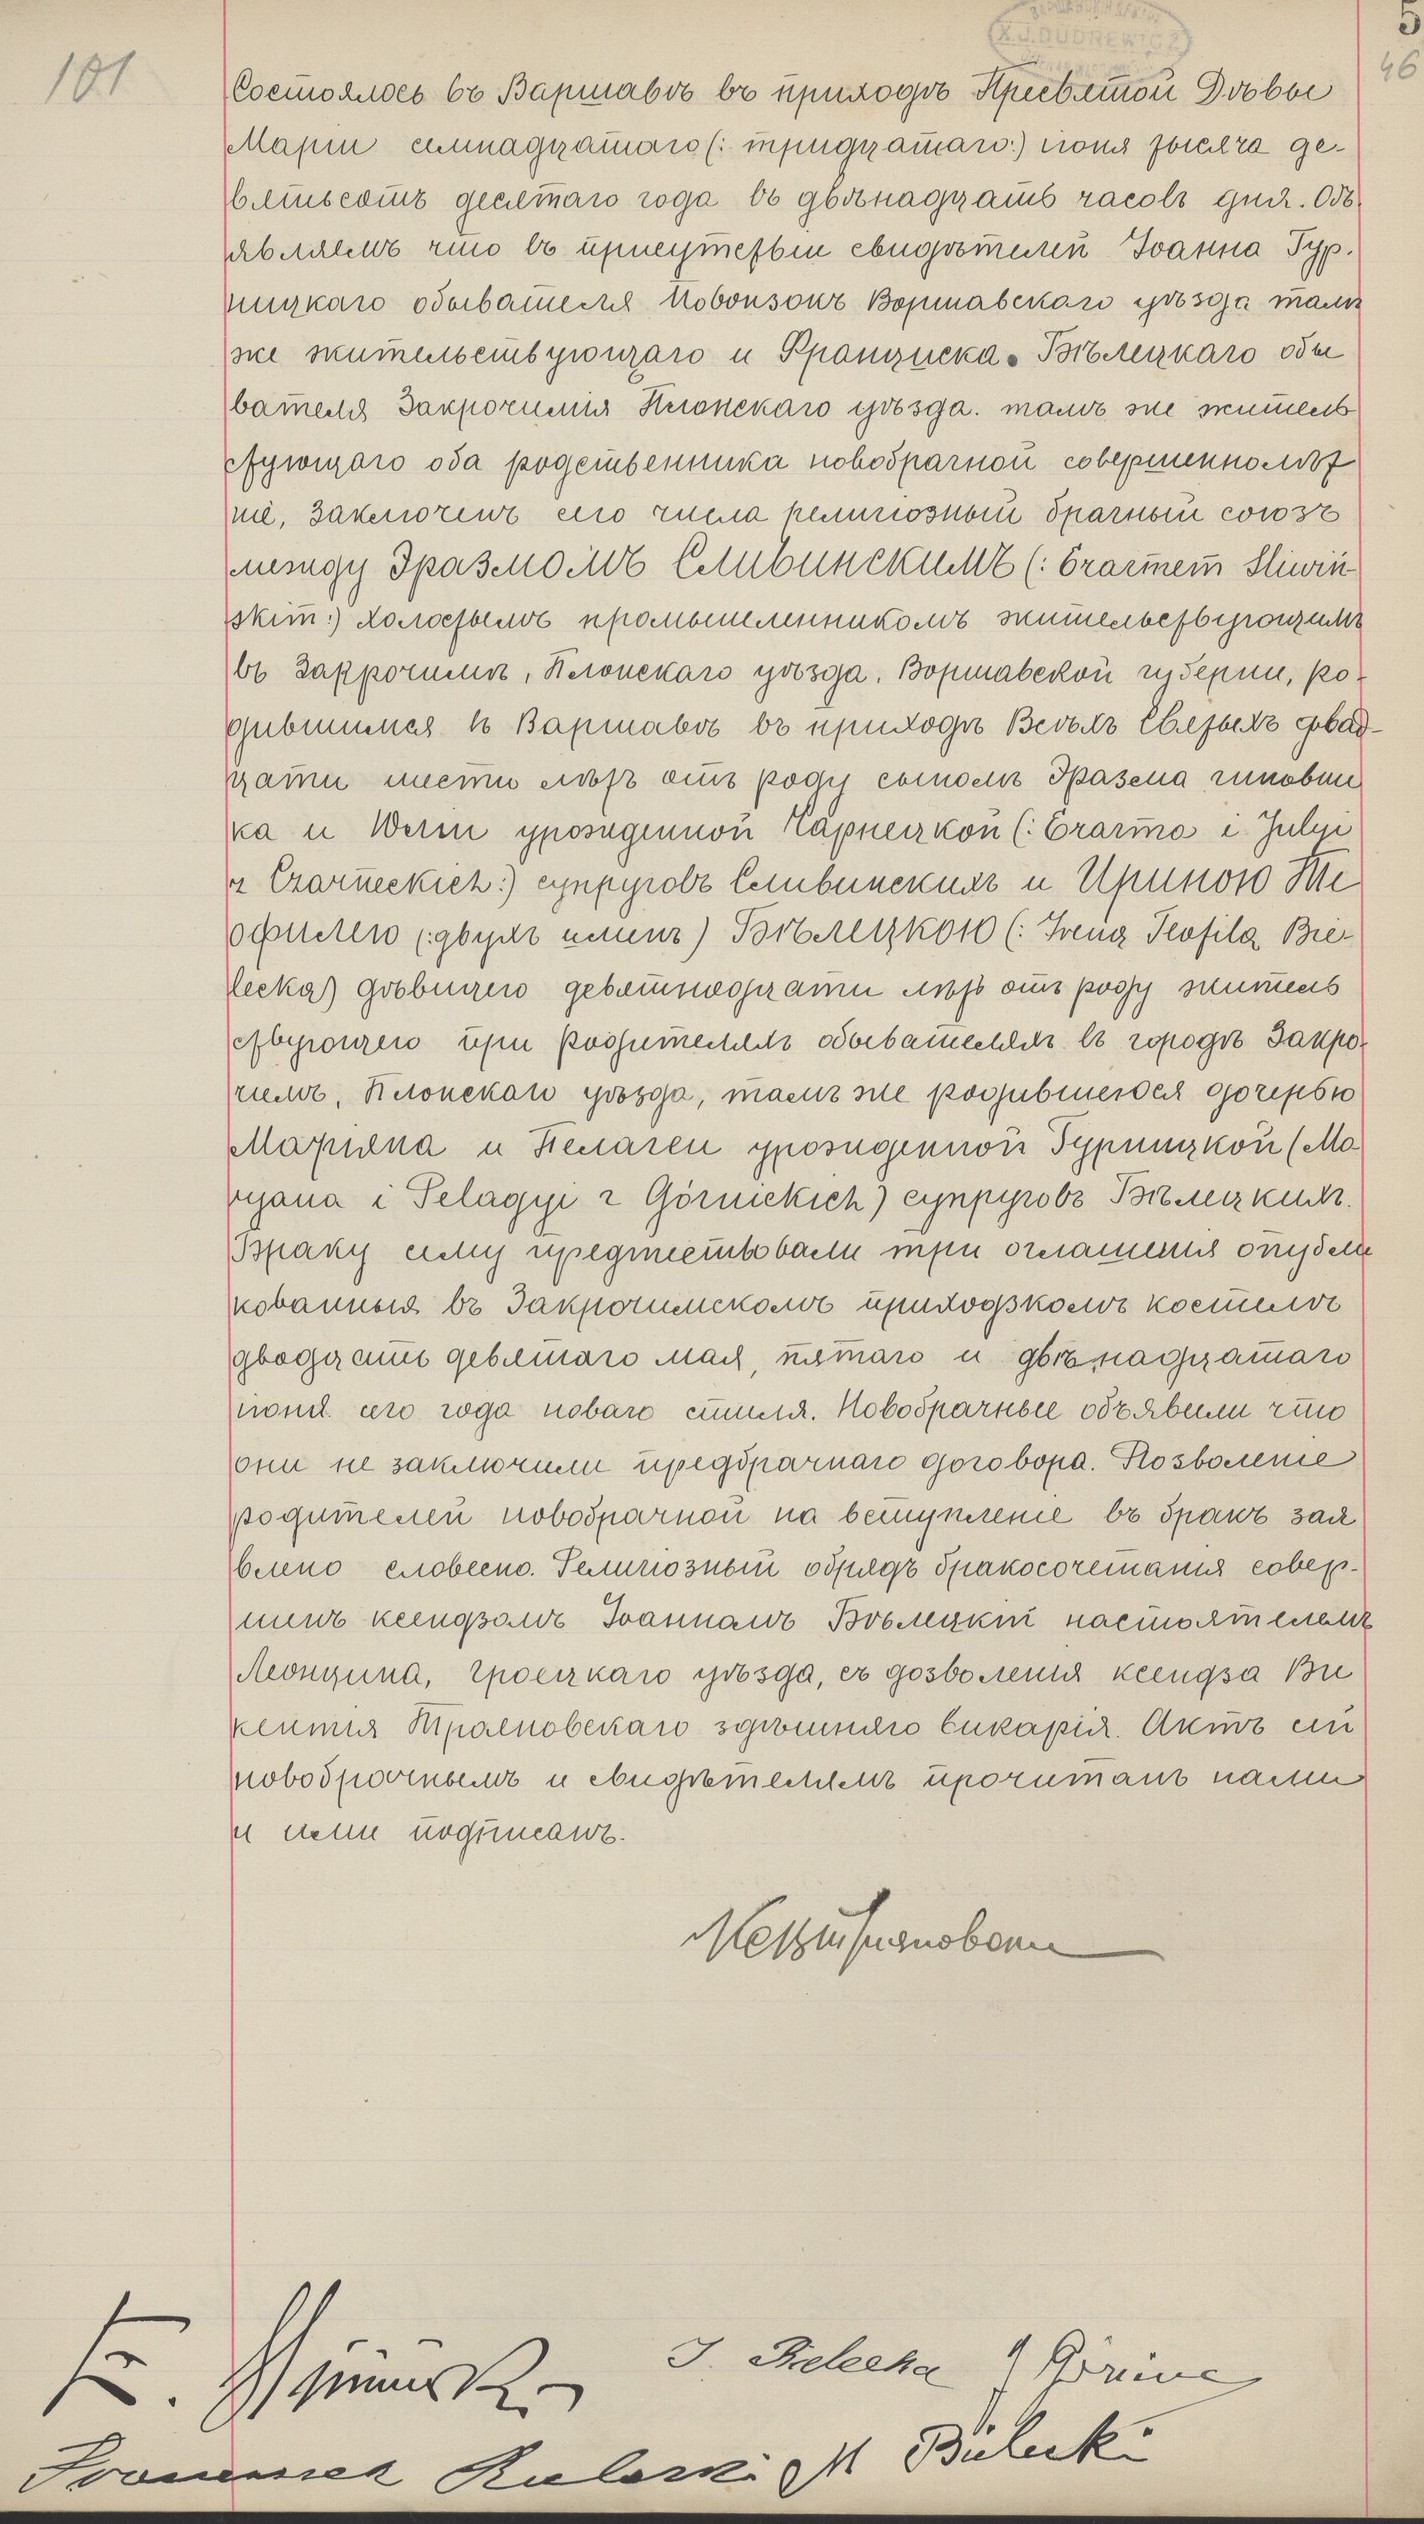 101
5
46
Состоялось въ Варшавѣ въ приходѣ Пресвятой Дѣвы
Маріи семнадцатаго (: тридцатаго:) іюня тысяча де-
вятьсотъ десятаго года въ двѣнадцать часовъ дня. Объ
являемъ что въ присутствіи свидѣтелей Іоанна Гур-
ницкаго обывателя Варшавскаго уѣзда тамъ
же жительствующаго и Францишка Бѣлецкаго обы
вателя Закрочима Плонскаго уѣзда. тамъ же житель
ствующаго оба родственника новобрачной совершеннолѣт
ніе, заключенъ сего числа религіозный брачный союзъ
между Эразмомъ Сливинскимъ (: Erazmem Sliwiń-
skim:) холостымъ промышленникомъ жительствующимъ
въ Закрочимѣ, Плонскаго уѣзда, Варшавской губерніи, ро-
дившимся въ Варшавѣ въ приходѣ Всѣхъ Святыхъ двад-
цати шести лѣтъ отъ роду сыномъ Эразма чиновни
ка и урожденной Чарнецкой (: Erazma i Julji
z Czarneckich:) супруговъ Сливинскихъ и Ириною Те
офилею (: двухъ именъ) Бѣлецкою (: Irena Teofila Bie-
lecka) дѣвицею девятнадцати лѣтъ отъ роду житель
ствующею при родителяхъ обывателяхъ въ городѣ Закро-
чимѣ, Плонскаго уѣзда, тамъ же родившеюся дочерью
Маріяна и Пелагеи урожденной Гурницкой (Ma-
ryana i Pelagyi z Górnickich) супруговъ Бѣлецкихъ.
Браку сему предшествовали три оглашенія опубли
кованныя въ Закрочимскомъ приходскомъ костелѣ
двадцать девятаго мая, пятаго и двѣнадцатаго
іюня сего года новаго стиля. Новобрачные объявили что
они не заключили предбрачнаго договора. Позволеніе
родителей новобрачной на вступленіе въ бракъ зая
влено словесно. Религіозный обрядъ бракосочетанія совер-
шенъ ксендзомъ Іоанномъ Бѣлецкій настоятелемъ
Леонцина, Гроецкаго уѣзда, съ дозволенія ксендза Ви
кентія здѣшняго викарія. Актъ сей
новобрачнымъ и свидѣтелямъ прочитанъ нами
и ними подписанъ.
J. Bielecka
M Bielecki